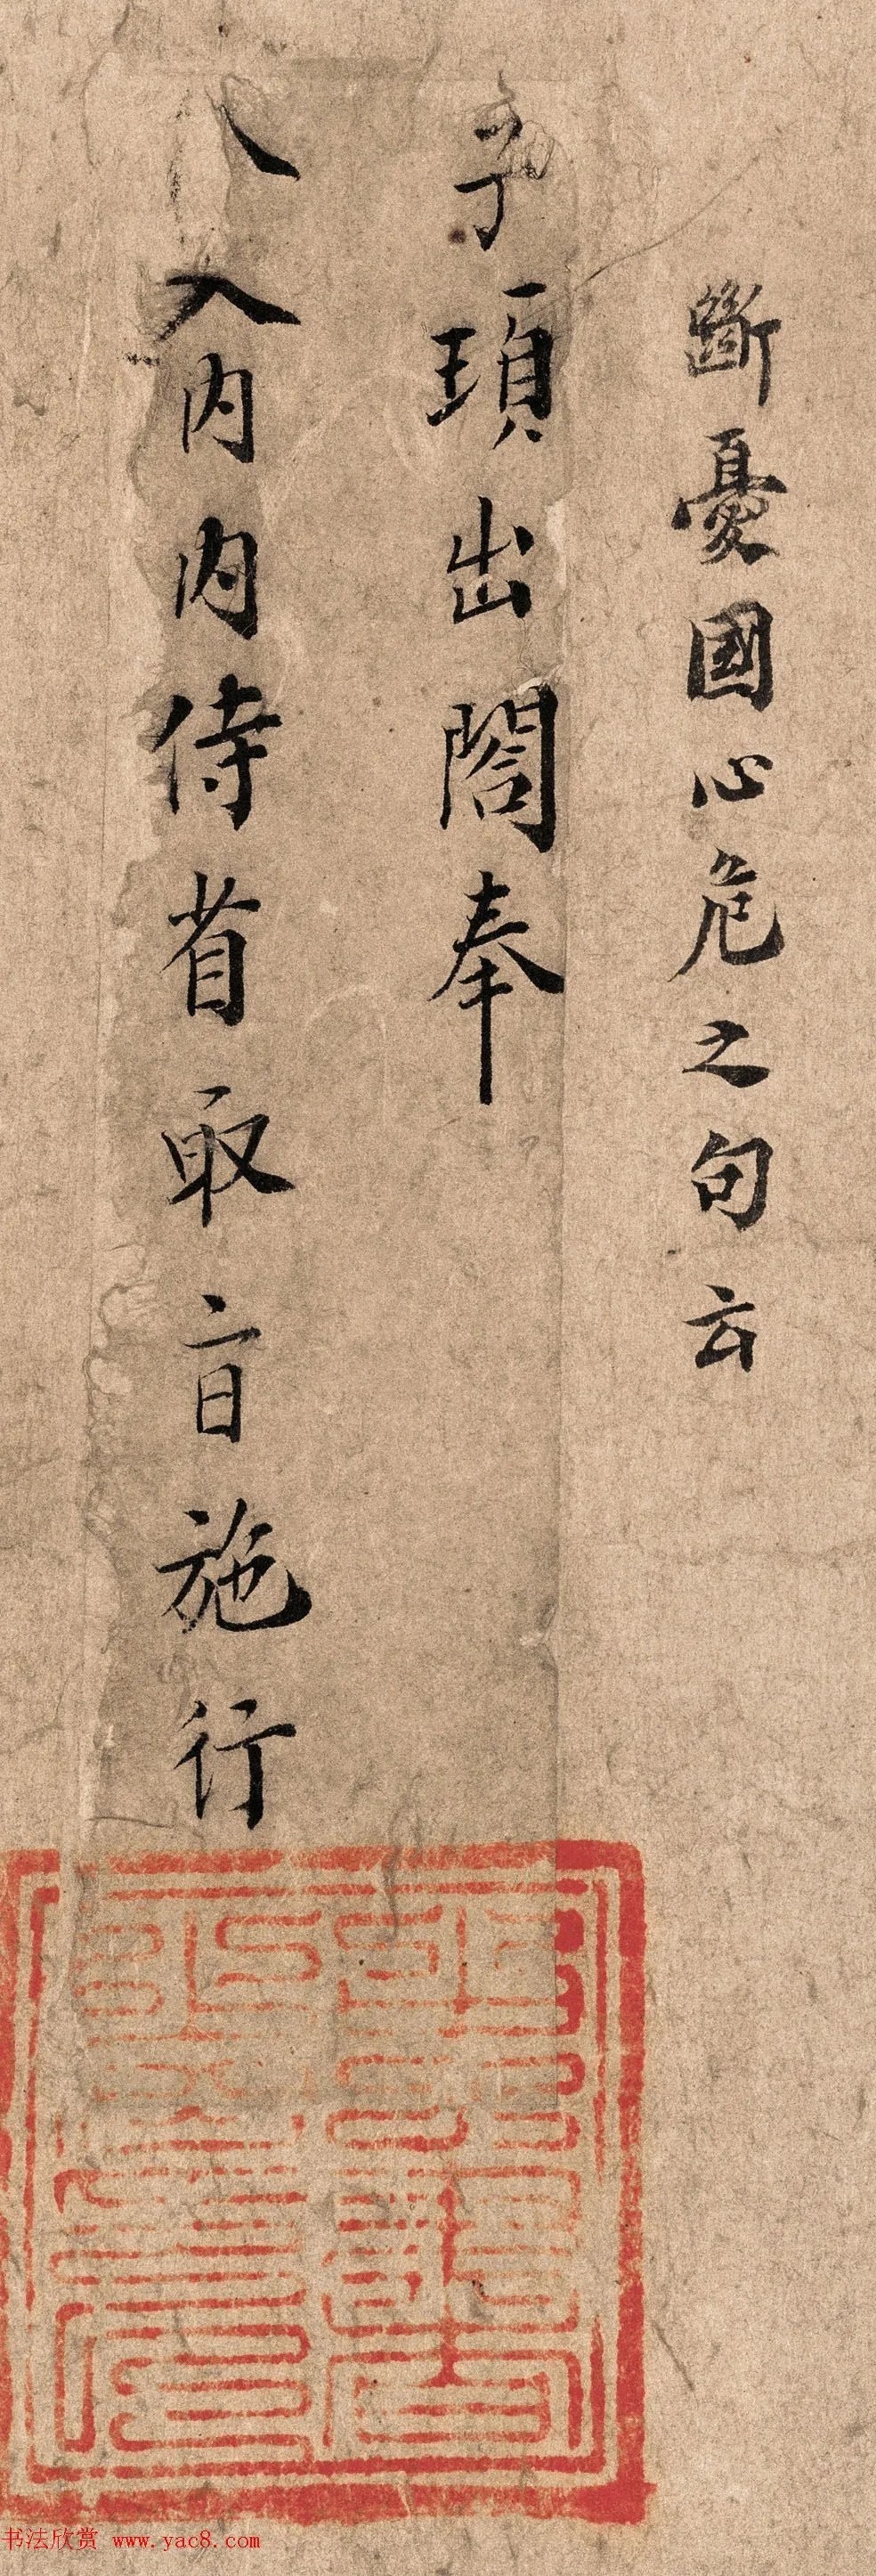 斷憂國心危之句云
子頊出閤奉
入內內侍省取旨施行
书法欣赏 www.yac8.com